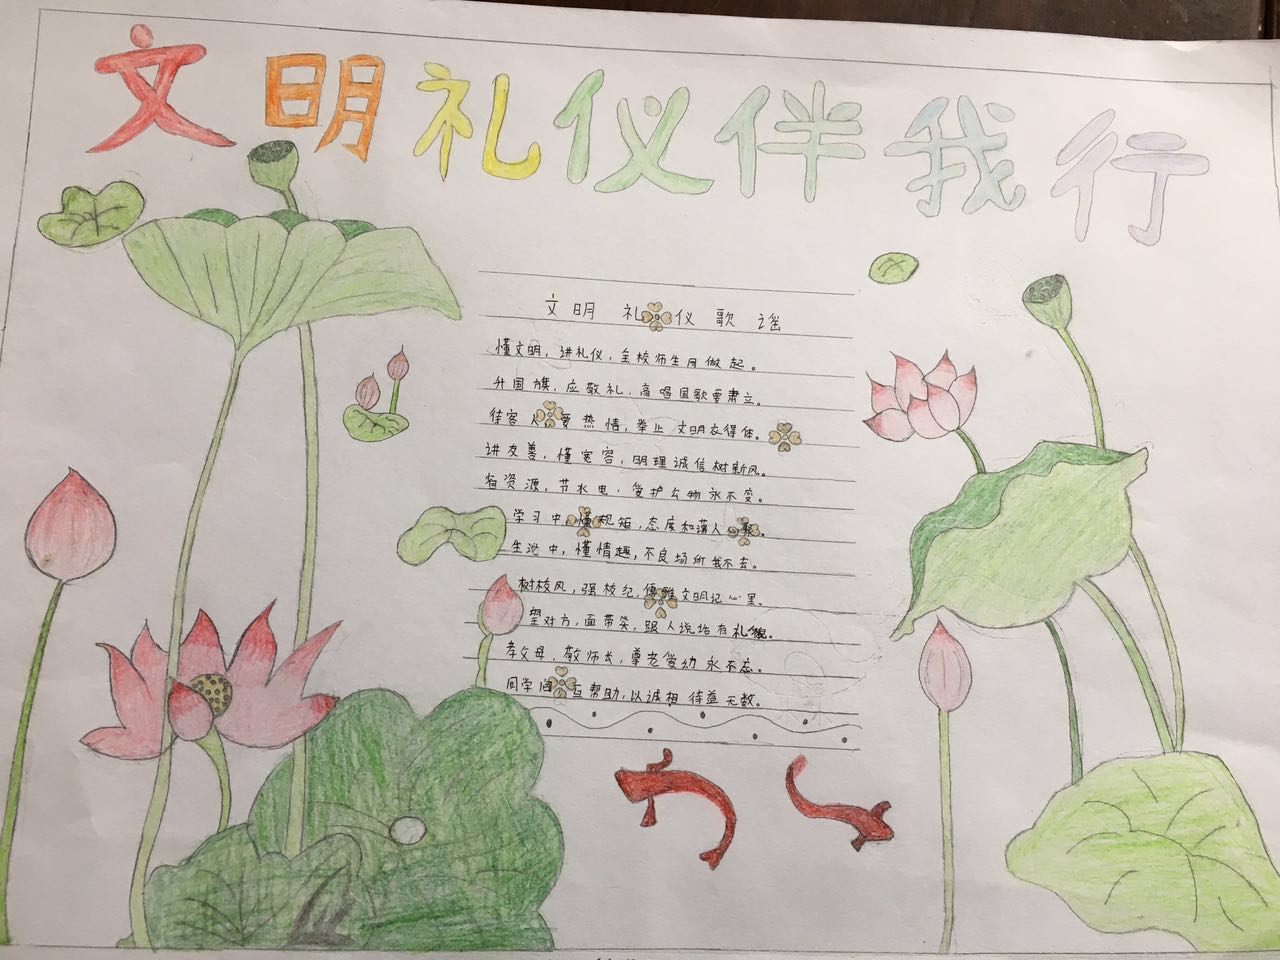 文明礼仪伴我行
文明礼仪歌谣
懂文明，讲礼仪，全校师生同做起。
升国旗，应敬礼，高唱国歌要肃立。
待客人要热情，举止文明友得体。
讲友善，懂宽容，明理诚信树新风。
省资源，节水电，爱护公物永不变。
学习中，懂规矩，态度和蔼人心聚。
生活中，懂情趣，不良场所我不去。
树校风，强校纪，儒雅文明记心里。
望对方，面带笑，跟人说话有礼貌。
孝父母，敬师长，尊老爱幼永不忘。
同学间互帮助，以诚相待益无数。